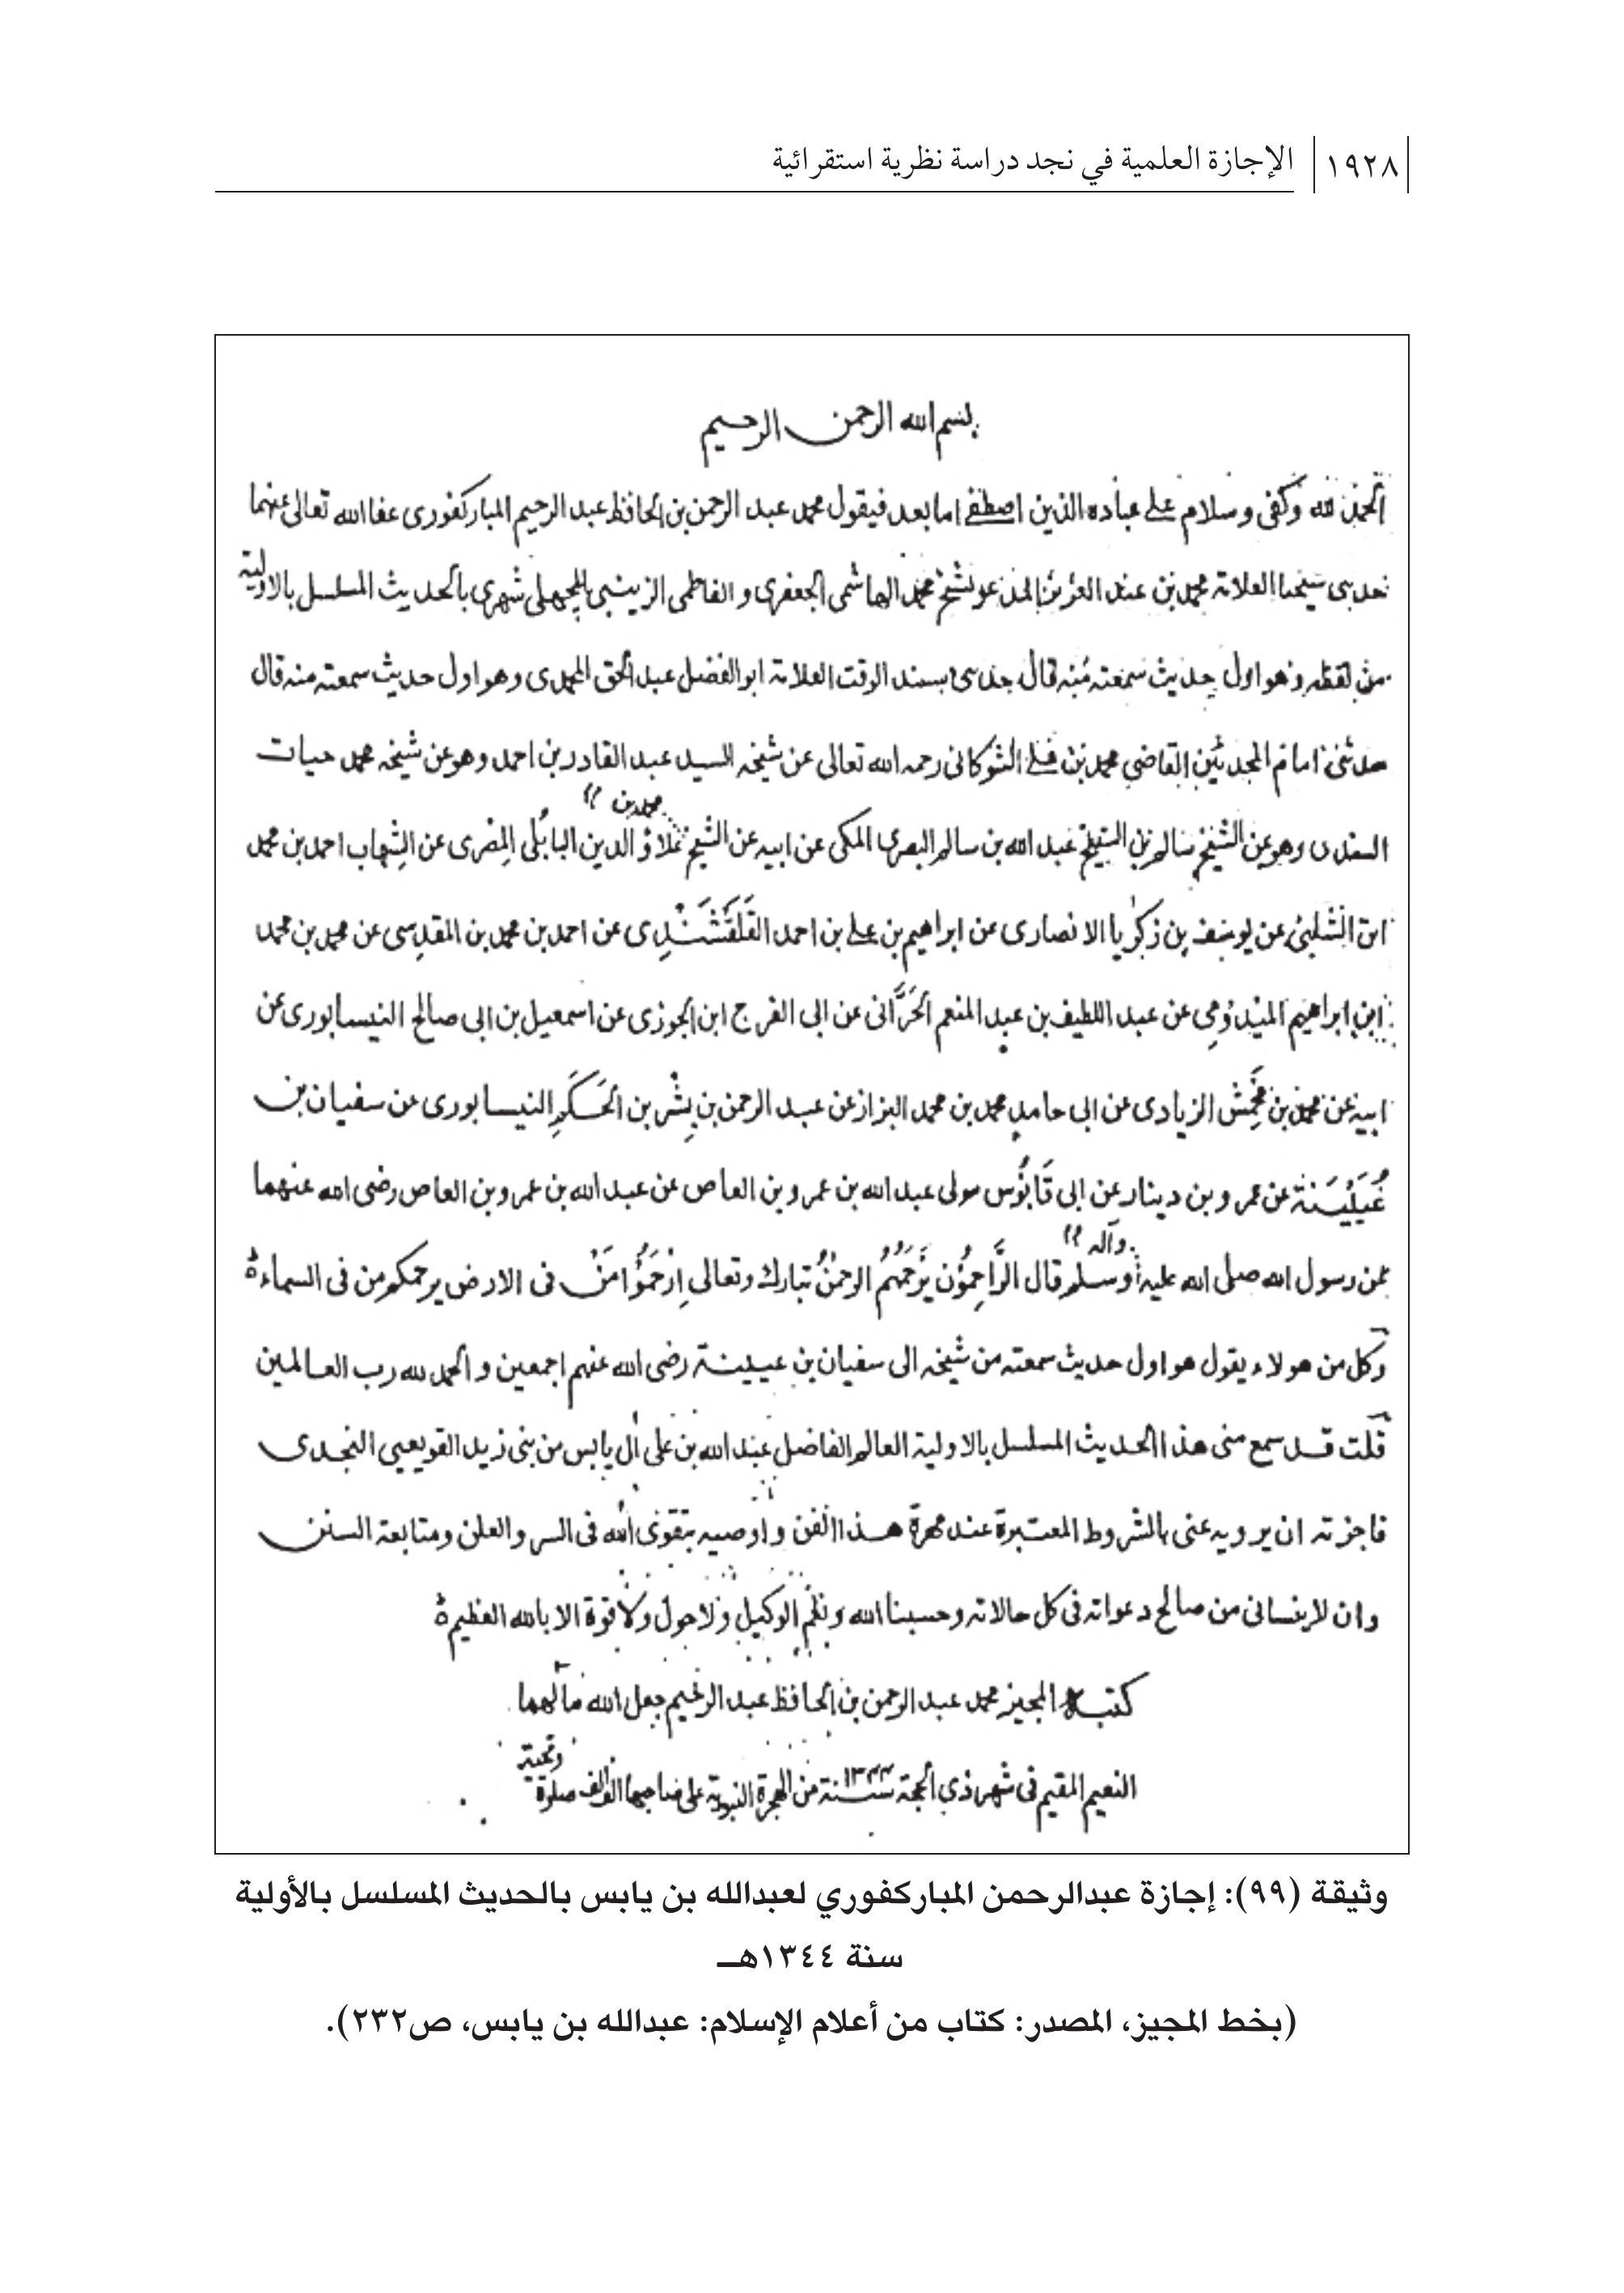 ١٩٢٨ الإجازة العلمية في نجد دراسة نظرية استقرائية
بسم الله الرحمن الرحيم
الحمد لله وكفى وسلام على عباده الذين اصطفى اما بعد فيقول محمد عبد الرحمن بن الحافظ عبد الرحيم المباركفورى عفا الله تعالى عنهما
حدثنى شيخنا العلامة محمد بن عبد العزيز المدعو بشيخ محمد الهاشمى الجعفرى والفاطمى الزينبى المچهلى شهرى بالحديث المسلسل بالاولية
من لفظه وهو اول حديث سمعته منه قال حدثنى مسند الوقت العلامة ابو الفضل عبد الحق المحمدى وهو اول حديث سمعته منه قال
حدثنى امام المحدثين القاضي محمد بن على الشوكانى رحمه الله تعالى عن شيخه السيد عبد القادر بن احمد وهو عن شيخه محمد حيات
السندى وهو عن الشيخ سالم بن الشيخ عبد الله بن سالم البصرى المكى عن ابيه عن الشيخ محمد بن علاؤ الدين البابلى المصرى عن الشهاب احمد بن محمد
ابن الشلبى عن يوسف بن زكريا الانصارى عن ابراهيم بن على بن احمد القَلَقَشَنْدِى عن احمد بن محمد بن المقدسى عن محمد بن محمد
ابن ابراهيم الميدومى عن عبد اللطيف بن عبد المنعم الحَرَّانى عن ابى الفرج ابن الجوزى عن اسمعيل بن ابى صالح النيسابورى عن
ابيه عن محمد بن مَحْمِش الزيادى عن ابى حامد محمد بن محمد البزاز عن عبد الرحمن بن بِشْر بن الحَكَمِ النيسابورى عن سفيان بن
عُيَيْنَة عن عمرو بن دينار عن ابى قَابُوس مولى عبد الله بن عمرو بن العاص عن عبد الله بن عمرو بن العاص رضى الله عنهما
عن رسول الله صلى الله عليه وآله وسلم قال الرَّاحِمُون يَرْحَمُهُمُ الرحمنُ تبارك وتعالى اِرْحَمُوْا مَنْ فى الارض يرحمكم من فى السماء ة
وكل من هولاء يقول هو اول حديث سمعته من شيخه الى سفيان بن عيينة رضى الله عنهم اجمعين والحمد لله رب العالمين
قلت قد سمع منى هذا الحديث المسلسل بالاولية العالم الفاضل عبد الله بن على آل يابس من بنى زيد القويعيى النجدى
فاجزته ان يرويه عنى بالشروط المعتبرة عند مهرة هذا الفن واوصيه بتقوى الله فى السر والعلن ومتابعة السنن
وان لاينسانى من صالح دعواته فى كل حالاته وحسبنا الله ونعم الوكيل ولا حول ولا قوة الا بالله العظيم ة
كتبه المجيز محمد عبد الرحمن بن الحافظ عبد الرحيم جعل الله مآلهما
النعيم المقيم فى شهر ذي الحجة سنة ١٣٤٤ من الهجرة النبوية على صاحبها الف الف صلوة وتحية
وثيقة (٩٩): إجازة عبدالرحمن المباركفوري لعبدالله بن يابس بالحديث المسلسل بالأولية
سنة ١٣٤٤هـ
(بخط المجيز، المصدر: كتاب من أعلام الإسلام: عبدالله بن يابس، ص٢٣٢).